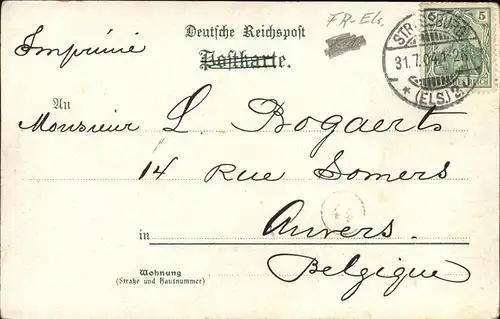 Deutsche Reichspost
FR-Els.
Imprimé
Postkarte.
STRASSBURG
31.7.04. 1-2N
* (ELS.) 2
5
An
Monsieur L. Bogaerts
14 Rue Somers
44
in Anvers.
Belgique
Wohnung
(Straße und Hausnummer)